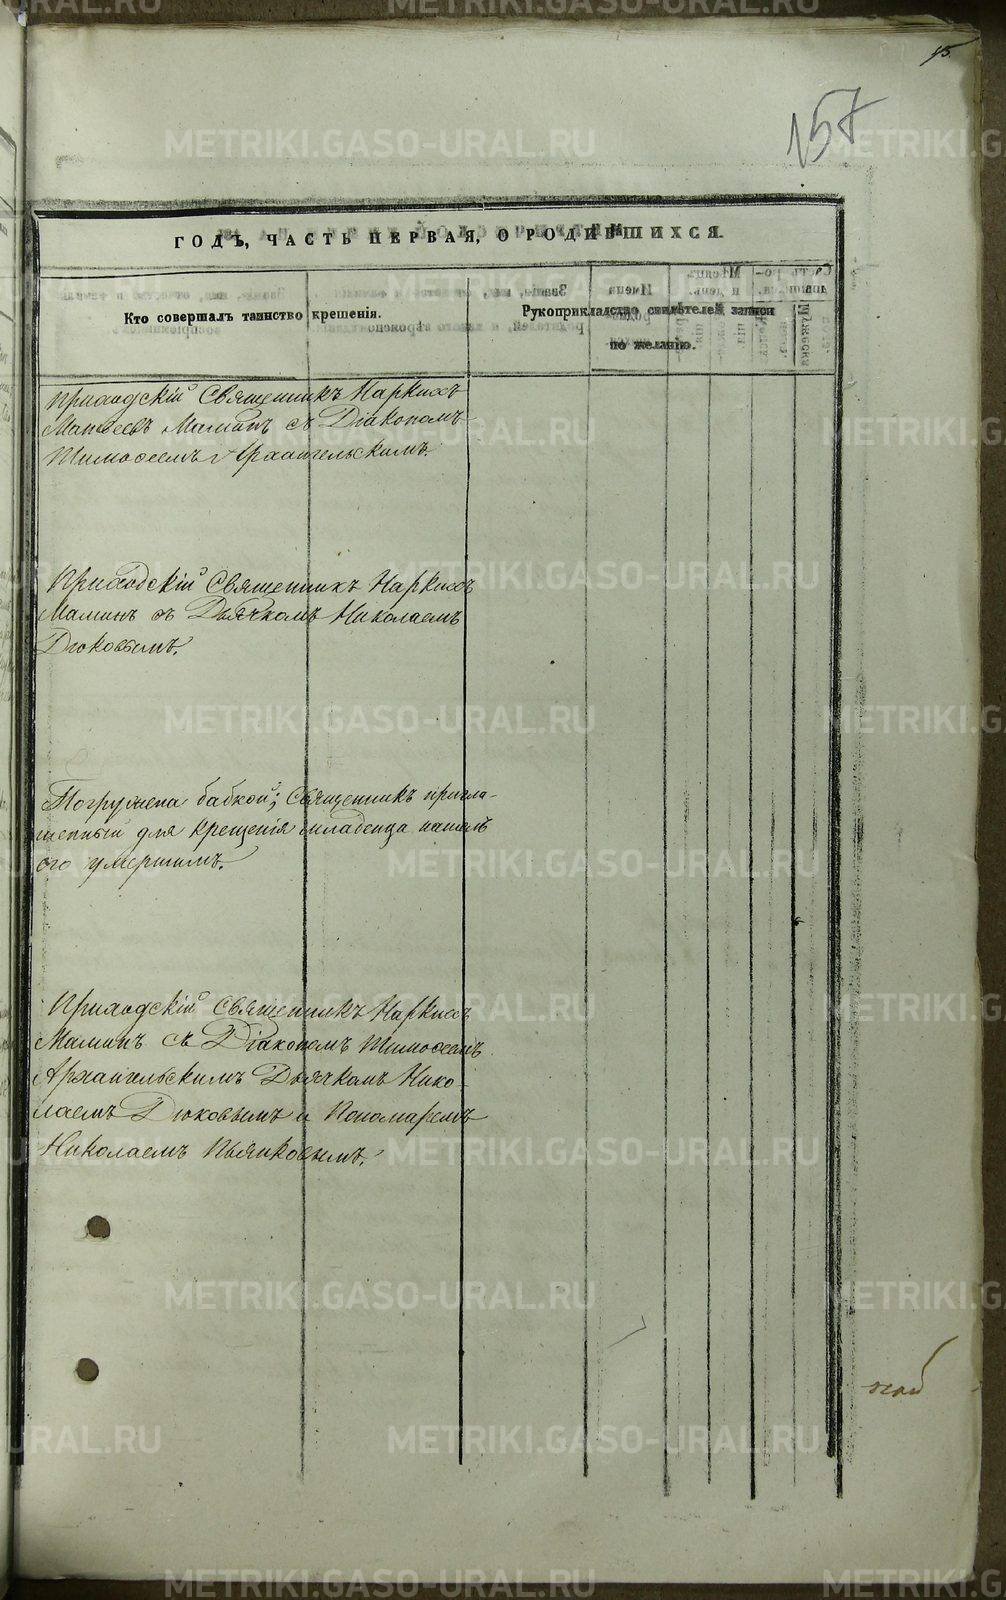 15.
157
ГОДЪ, ЧАСТЬ ПЕРВАЯ, О РОДИВШИХСЯ.
Кто совершалъ таинство крещенія.
Рукоприкладство свидѣтелей записи
по желанію.
Приходскій Священникъ Наркисъ
Матвеевъ Маминъ съ Діакономъ
Тимофеемъ Архангельскимъ.
Приходскій Священникъ Наркисъ
Маминъ съ Дьячкомъ Николаемъ
Дюковымъ.
Погружена бабкой; Священникъ пригла-
шенный для крещенія младенца нашелъ
его умершимъ.
Приходскій Священникъ Наркисъ
Маминъ съ Діакономъ Тимофеемъ
Архангельскимъ Дьячкомъ Нико-
лаемъ Дюковымъ и Пономаремъ
Николаемъ Пьянковымъ.
METRIKI.GASO-URAL.RU